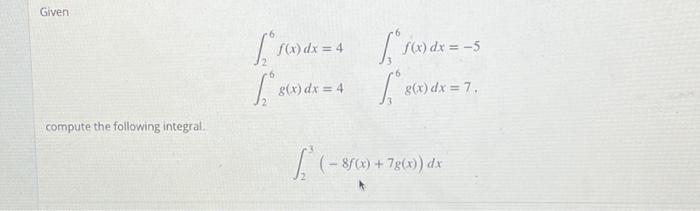 Given
∫₂⁶ f(x) dx = 4 ∫₃⁶ f(x) dx = −5
∫₂⁶ g(x) dx = 4 ∫₃⁶ g(x) dx = 7.
compute the following integral.
∫₂³ (− 8f(x) + 7g(x)) dx